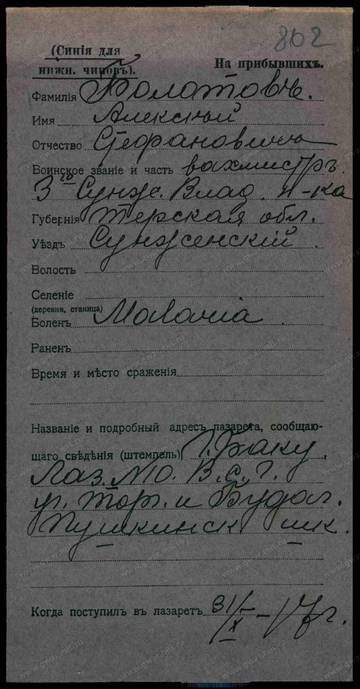 802
(Синія для
нижн. чиновъ).
На прибывшихъ.
Фамилія Болатовъ.
Имя Алексѣй
Отчество Стефановичъ
Воинское званіе и часть вахмистръ
3го Сунж. Влад. п-ка
Губернія Терская обл.
Уѣздъ Сунженскій
Волость
Селеніе
(деревня, станица)
Боленъ Малярія
Раненъ
Время и мѣсто сраженія
Названіе и подробный адресъ лазарета, сообщаю-
щаго свѣдѣнія (штемпель) г. Баку.
Лаз. Мо. В. С. Г.
уг. Тор. и Будаг.
Пушкинск шк.
Когда поступилъ въ лазаретъ 31/X-17 г.